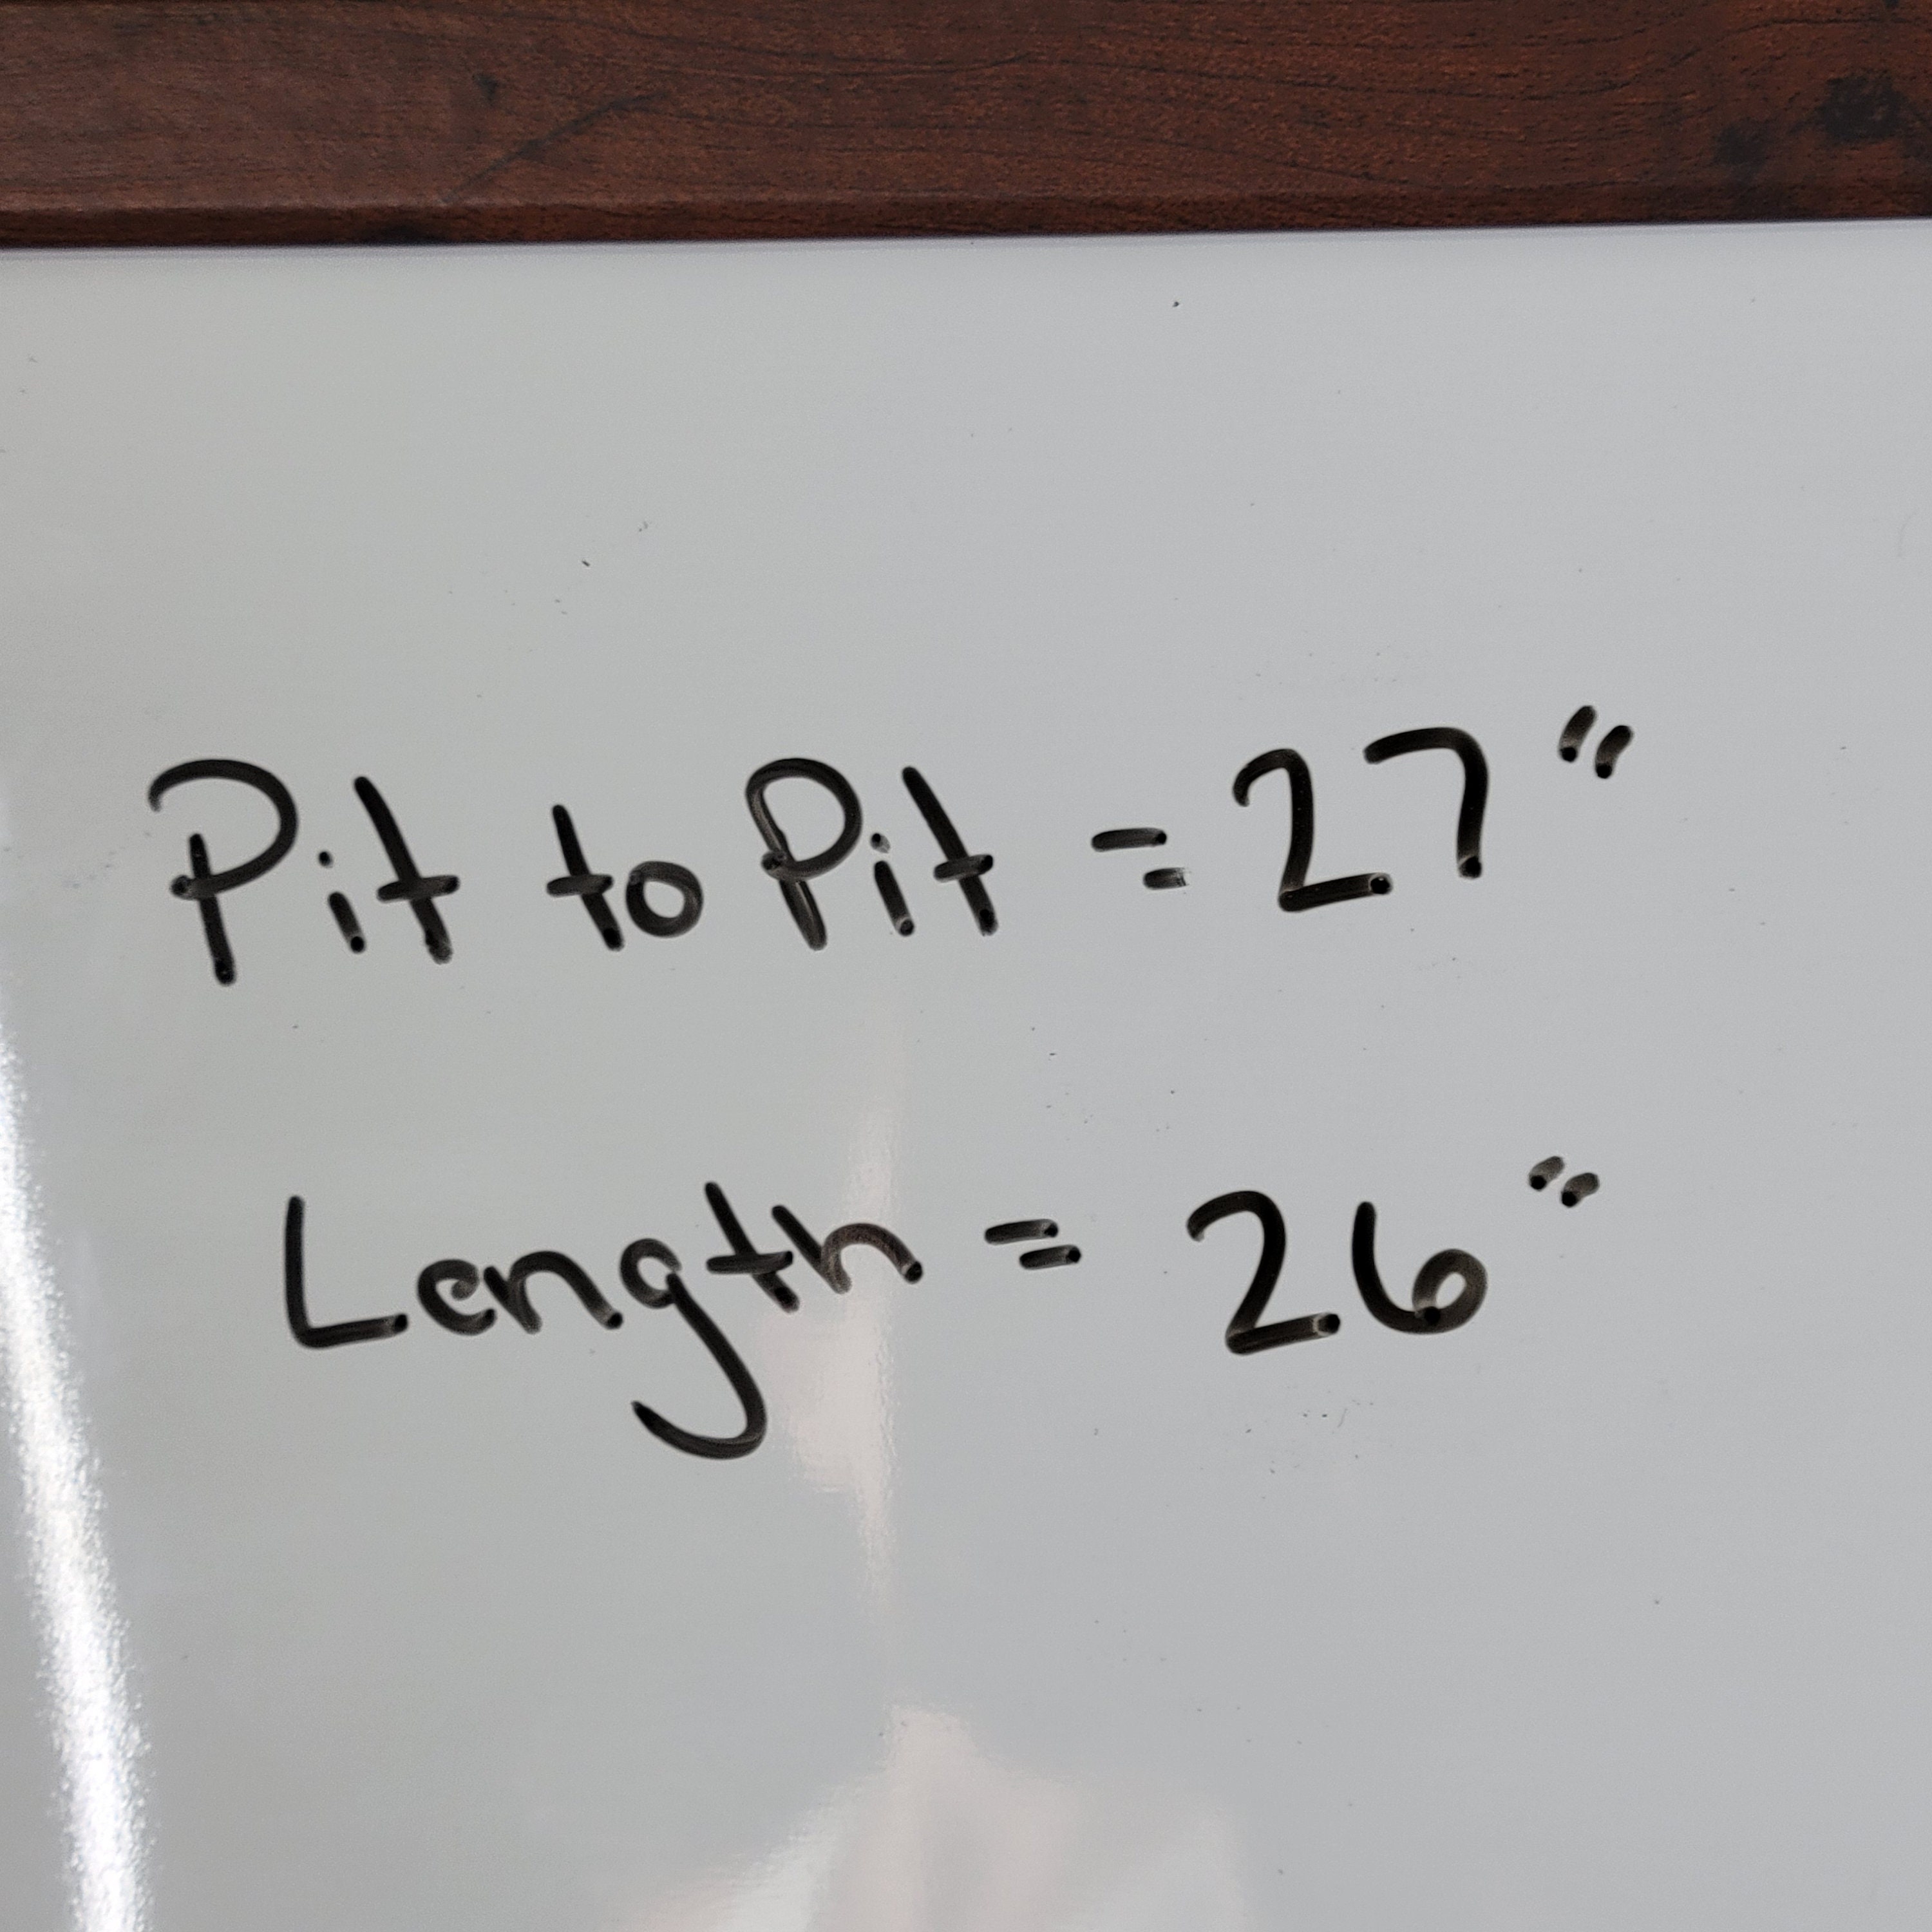 Pit to Pit = 27"
Length = 26"